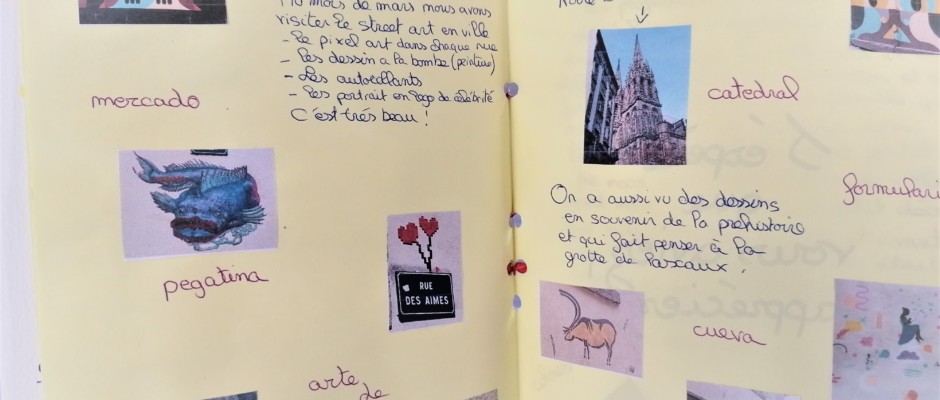 mois de mars nous avons
visiter le street art en ville
- le pixel art dans chaque rue
- les dessin a la bombe (peinture)
- les autocollants
- les portrait en lego de célébrité
C'est trés beau !
mercado
pegatina
RUE
DES AIMES
arte
de
catedral
On a aussi vu des dessins
en souvenir de la préhistoire
et qui fait penser à la
grotte de Lascaux.
formulari
cueva